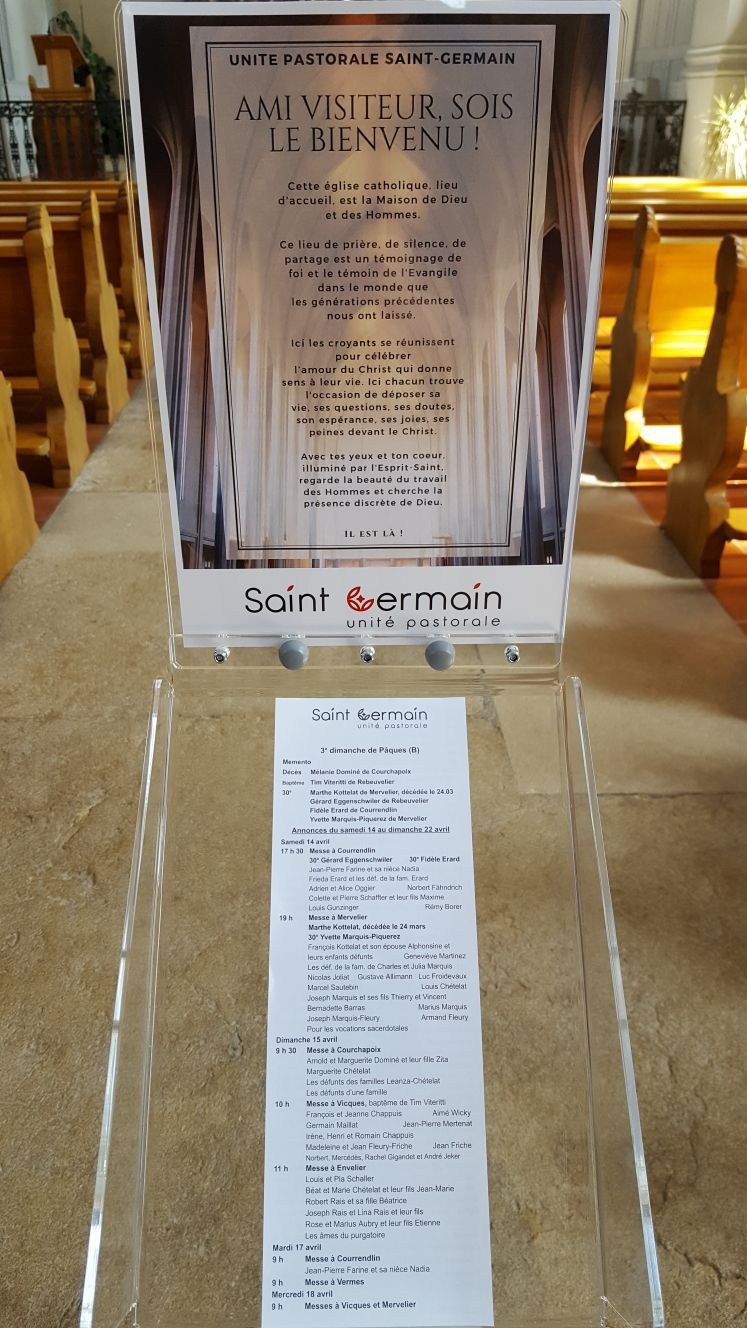 UNITE PASTORALE SAINT-GERMAIN
AMI VISITEUR, SOIS
LE BIENVENU !
Cette église catholique, lieu
d'accueil, est la Maison de Dieu
et des Hommes.
Ce lieu de prière, de silence, de
partage est un témoignage de
foi et le témoin de l'Evangile
dans le monde que
les générations précédentes
nous ont laissé.
Ici les croyants se réunissent
pour célébrer
l'amour du Christ qui donne
sens à leur vie. Ici chacun trouve
l'occasion de déposer sa
vie, ses questions, ses doutes,
son espérance, ses joies, ses
peines devant le Christ.
Avec tes yeux et ton coeur,
illuminé par l'Esprit-Saint,
regarde la beauté du travail
des Hommes et cherche la
présence discrète de Dieu.
IL EST LÀ !
Saint Germain
unité pastorale
Saint Germain
unité pastorale
3e dimanche de Pâques (B)
Memento
Décès Mélanie Dominé de Courchapoix
Baptême Tim Viteritti de Rebeuvelier
30e Marthe Kottelat de Mervelier, décédée le 24.03
Gérard Eggenschwiler de Rebeuvelier
Fidèle Erard de Courrendlin
Yvette Marquis-Piquerez de Mervelier
Annonces du samedi 14 au dimanche 22 avril
Samedi 14 avril
17 h 30 Messe à Courrendlin
30e Gérard Eggenschwiler 30e Fidèle Erard
Jean-Pierre Farine et sa nièce Nadia
Frieda Erard et les déf. de la fam. Erard
Adrien et Alice Oggier Norbert Fähndrich
Colette et Pierre Schaffter et leur fils Maxime
Louis Gunzinger Rémy Borer
19 h Messe à Mervelier
Marthe Kottelat, décédée le 24 mars
30e Yvette Marquis-Piquerez
François Kottelat et son épouse Alphonsine et
leurs enfants défunts Geneviève Martinez
Les déf. de la fam. de Charles et Julia Marquis
Nicolas Joliat Gustave Allimann Luc Froidevaux
Marcel Sautebin Louis Chételat
Joseph Marquis et ses fils Thierry et Vincent
Bernadette Barras Marius Marquis
Joseph Marquis-Fleury Armand Fleury
Pour les vocations sacerdotales
Dimanche 15 avril
9 h 30 Messe à Courchapoix
Arnold et Marguerite Dominé et leur fille Zita
Marguerite Chételat
Les défunts des familles Leanza-Chételat
Les défunts d'une famille
10 h Messe à Vicques, baptême de Tim Viteritti
François et Jeanne Chappuis Aimé Wicky
Germain Maillat Jean-Pierre Mertenat
Irène, Henri et Romain Chappuis
Madeleine et Jean Fleury-Friche Jean Friche
Norbert, Mercédès, Rachel Gigandet et André Jeker
11 h Messe à Envelier
Louis et Pia Schaller
Béat et Marie Chételat et leur fils Jean-Marie
Robert Rais et sa fille Béatrice
Joseph Rais et Lina Rais et leur fils
Rose et Marius Aubry et leur fils Etienne
Les âmes du purgatoire
Mardi 17 avril
9 h Messe à Courrendlin
Jean-Pierre Farine et sa nièce Nadia
9 h Messe à Vermes
Mercredi 18 avril
9 h Messes à Vicques et Mervelier